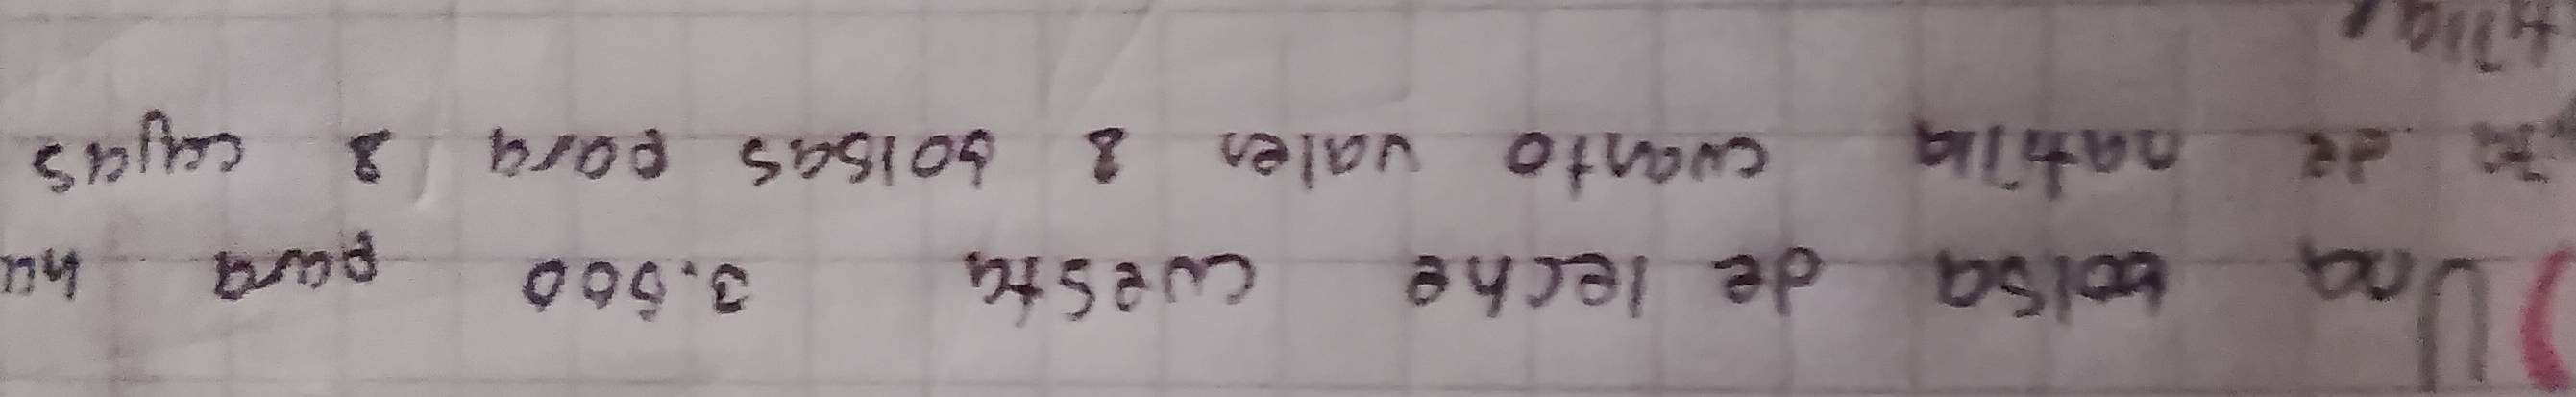 Una bolsa de leche cuesta 3.500 para
de natilla cuanto valen 8 bolsas para 8 cajas